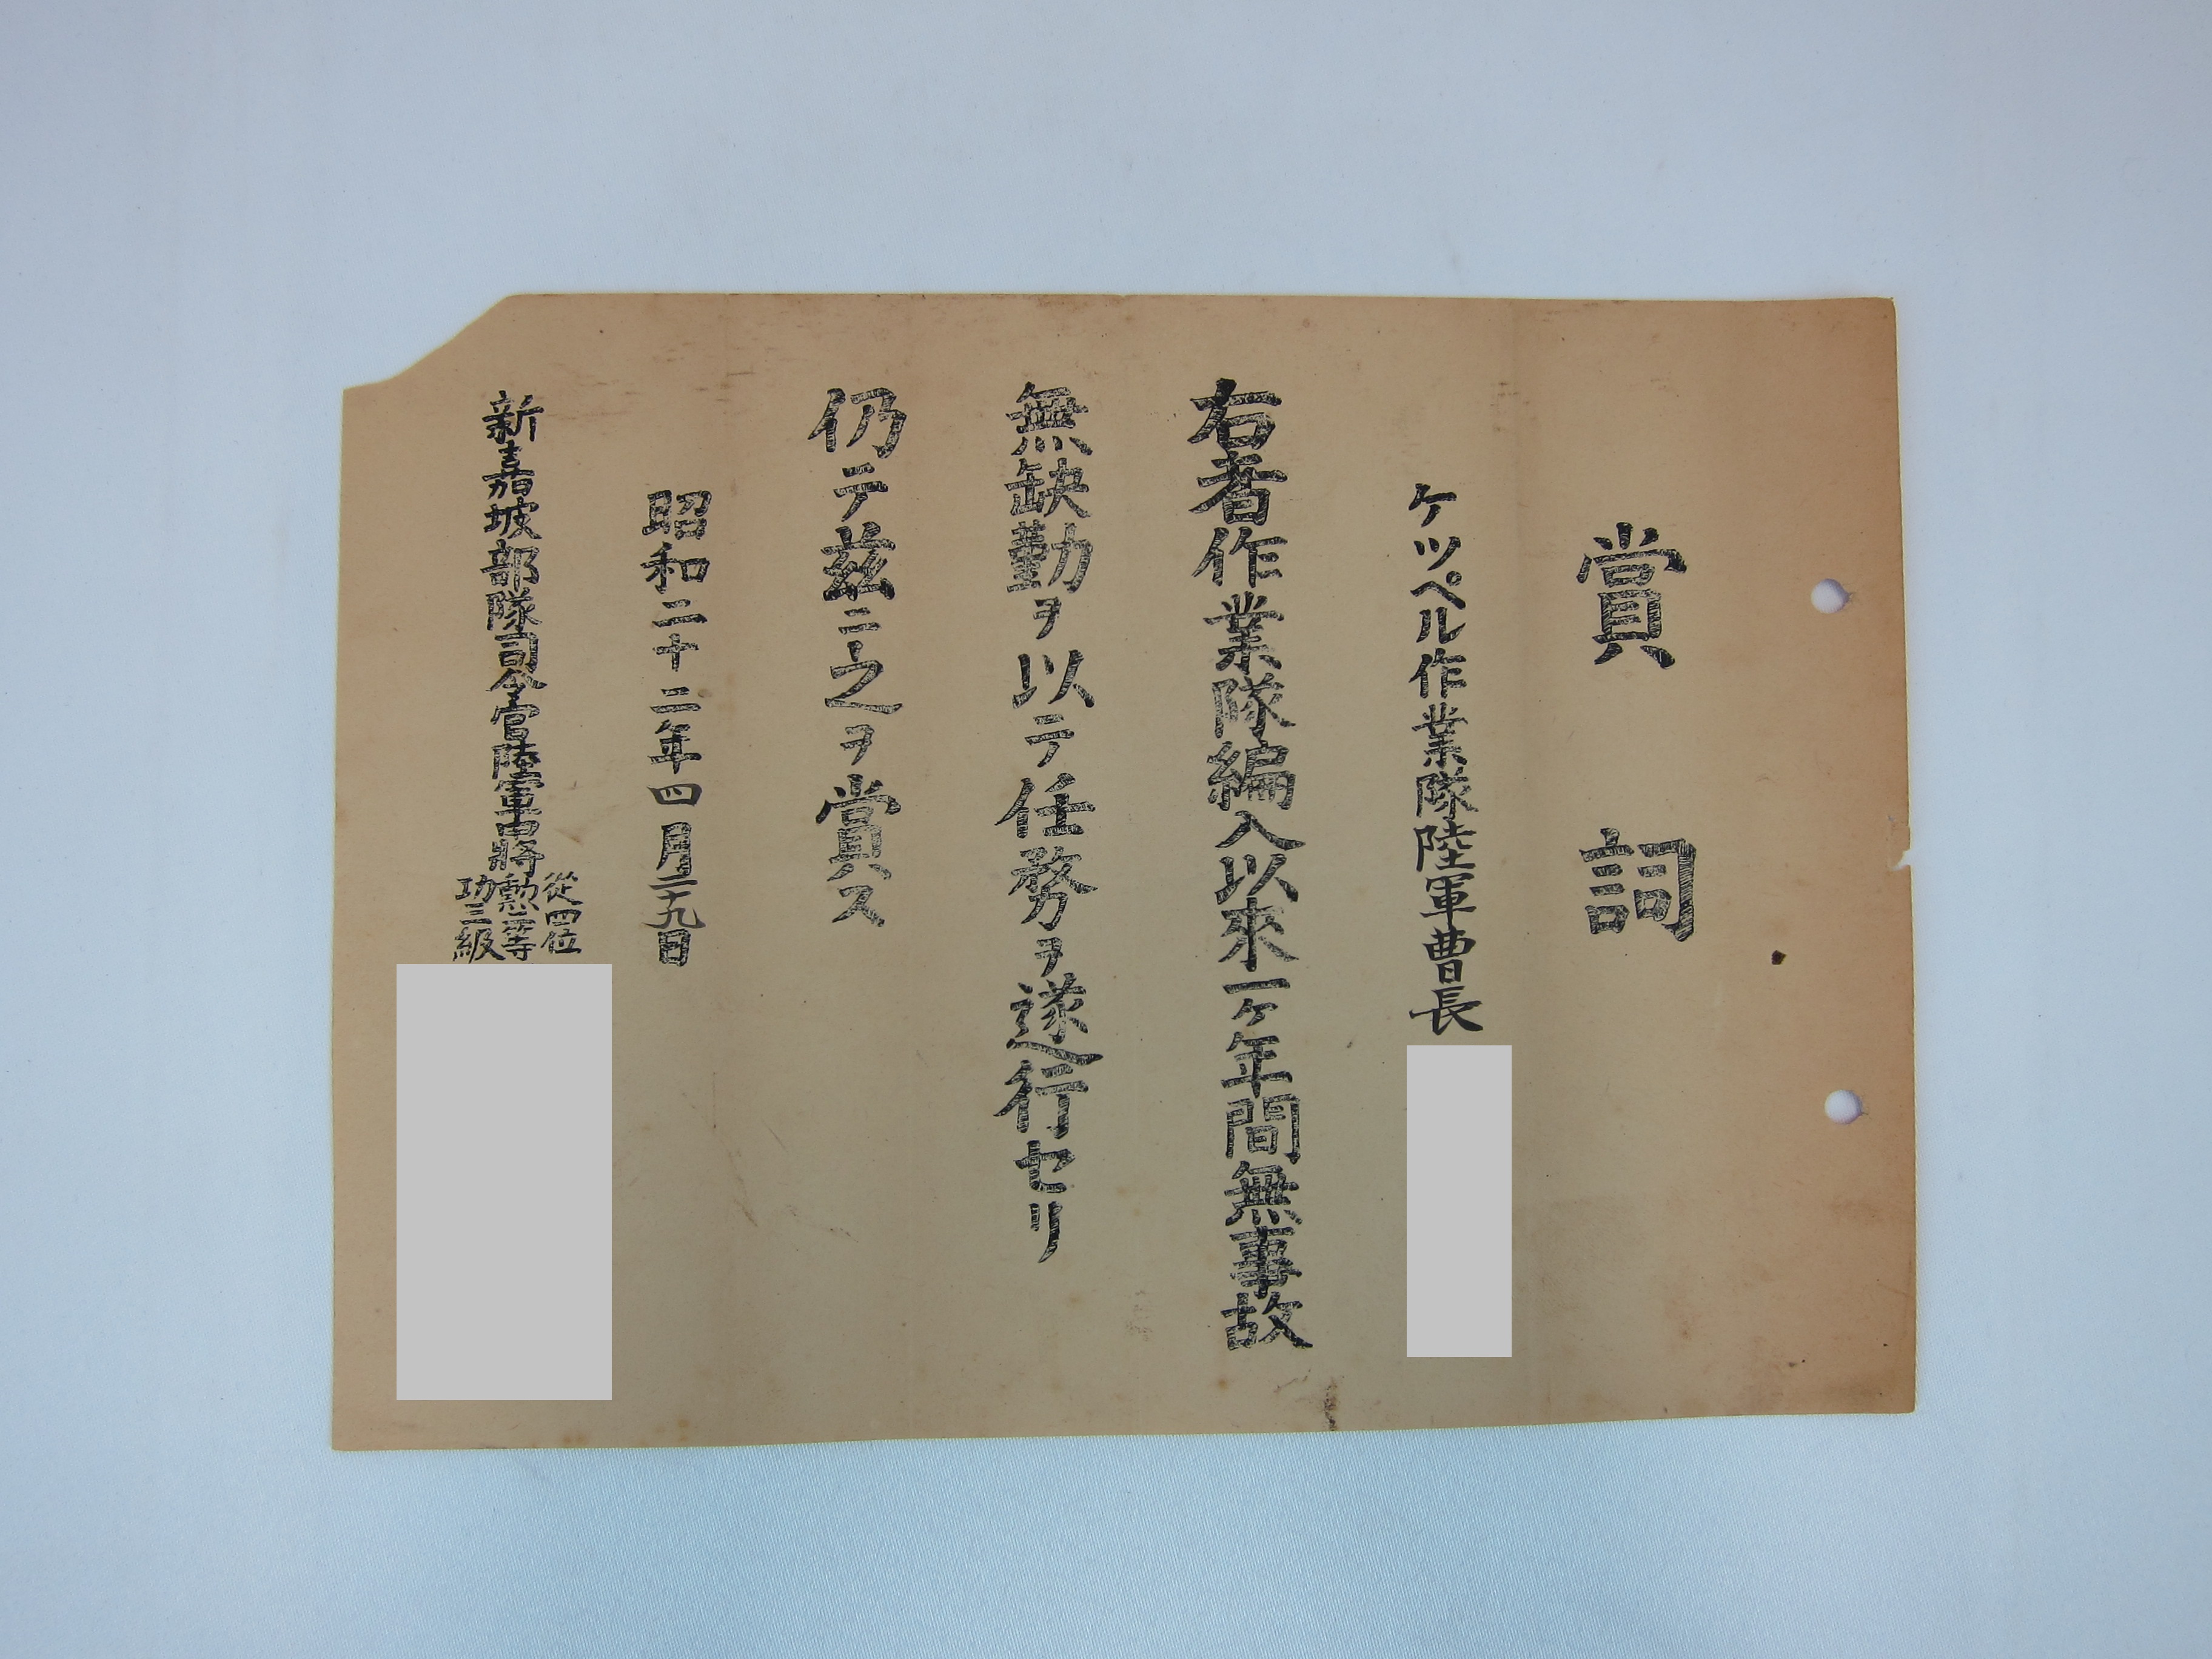 賞詞
ケツペル作業隊陸軍曹長
右者作業隊編入以來一ヶ年間無事故
無缺勤ヲ以テ任務ヲ遂行セリ
仍テ茲ニ之ヲ賞ス
昭和二十二年四月二十九日
新嘉坡部隊司令官陸軍中將
從四位
勲二等
功三級